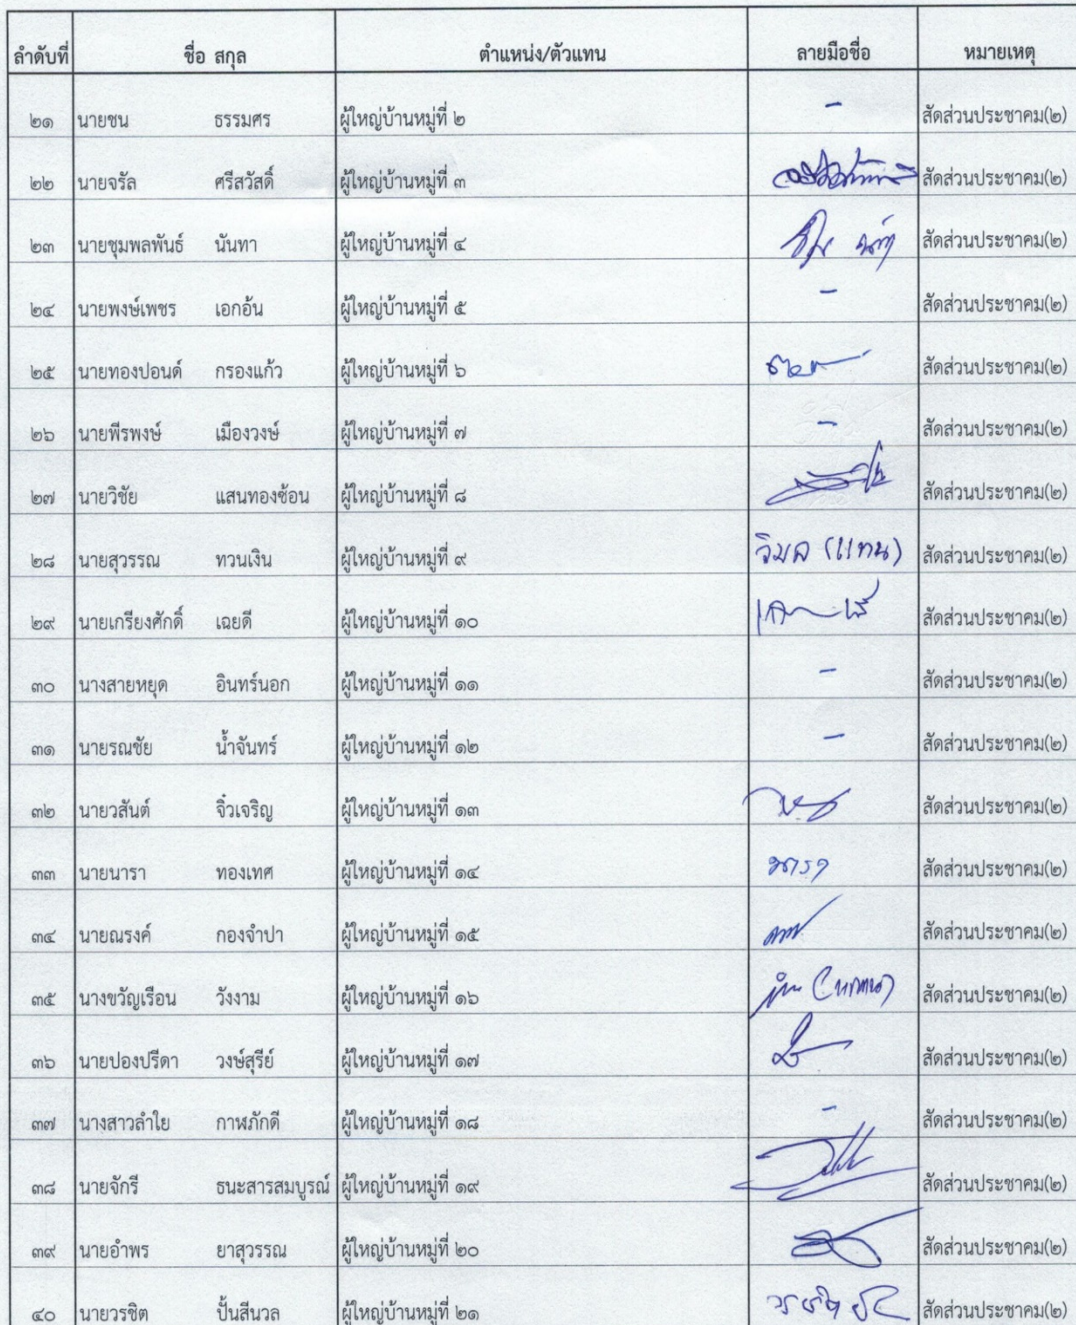 ลำดับที่ ชื่อ สกุล ตำแหน่ง/ตัวแทน ลายมือชื่อ หมายเหตุ
๒๑ นายชน ธรรมศร ผู้ใหญ่บ้านหมู่ที่ ๒ - สัดส่วนประชาคม(๒)
๒๒ นายจรัล ศรีสวัสดิ์ ผู้ใหญ่บ้านหมู่ที่ ๓ สัดส่วนประชาคม(๒)
๒๓ นายชุมพลพันธ์ นันทา ผู้ใหญ่บ้านหมู่ที่ ๔ สัดส่วนประชาคม(๒)
๒๔ นายพงษ์เพชร เอกอ้น ผู้ใหญ่บ้านหมู่ที่ ๕ - สัดส่วนประชาคม(๒)
๒๕ นายทองปอนด์ กรองแก้ว ผู้ใหญ่บ้านหมู่ที่ ๖ สัดส่วนประชาคม(๒)
๒๖ นายพีรพงษ์ เมืองวงษ์ ผู้ใหญ่บ้านหมู่ที่ ๗ - สัดส่วนประชาคม(๒)
๒๗ นายวิชัย แสนทองซ้อน ผู้ใหญ่บ้านหมู่ที่ ๘ สัดส่วนประชาคม(๒)
๒๘ นายสุวรรณ ทวนเงิน ผู้ใหญ่บ้านหมู่ที่ ๙ วิมล (แทน) สัดส่วนประชาคม(๒)
๒๙ นายเกรียงศักดิ์ เฉยดี ผู้ใหญ่บ้านหมู่ที่ ๑๐ สัดส่วนประชาคม(๒)
๓๐ นางสายหยุด อินทร์นอก ผู้ใหญ่บ้านหมู่ที่ ๑๑ - สัดส่วนประชาคม(๒)
๓๑ นายรณชัย น้ำจันทร์ ผู้ใหญ่บ้านหมู่ที่ ๑๒ - สัดส่วนประชาคม(๒)
๓๒ นายวสันต์ จิ๋วเจริญ ผู้ใหญ่บ้านหมู่ที่ ๑๓ สัดส่วนประชาคม(๒)
๓๓ นายนารา ทองเทศ ผู้ใหญ่บ้านหมู่ที่ ๑๔ นารา สัดส่วนประชาคม(๒)
๓๔ นายณรงค์ กองจำปา ผู้ใหญ่บ้านหมู่ที่ ๑๕ สัดส่วนประชาคม(๒)
๓๕ นางขวัญเรือน วังงาม ผู้ใหญ่บ้านหมู่ที่ ๑๖ (แทน) สัดส่วนประชาคม(๒)
๓๖ นายปองปรีดา วงษ์สุรีย์ ผู้ใหญ่บ้านหมู่ที่ ๑๗ สัดส่วนประชาคม(๒)
๓๗ นางสาวลำไย กาฬภักดี ผู้ใหญ่บ้านหมู่ที่ ๑๘ - สัดส่วนประชาคม(๒)
๓๘ นายจักรี ธนะสารสมบูรณ์ ผู้ใหญ่บ้านหมู่ที่ ๑๙ สัดส่วนประชาคม(๒)
๓๙ นายอำพร ยาสุวรรณ ผู้ใหญ่บ้านหมู่ที่ ๒๐ สัดส่วนประชาคม(๒)
๔๐ นายวรชิต ปั้นสีนวล ผู้ใหญ่บ้านหมู่ที่ ๒๑ วรชิต สัดส่วนประชาคม(๒)